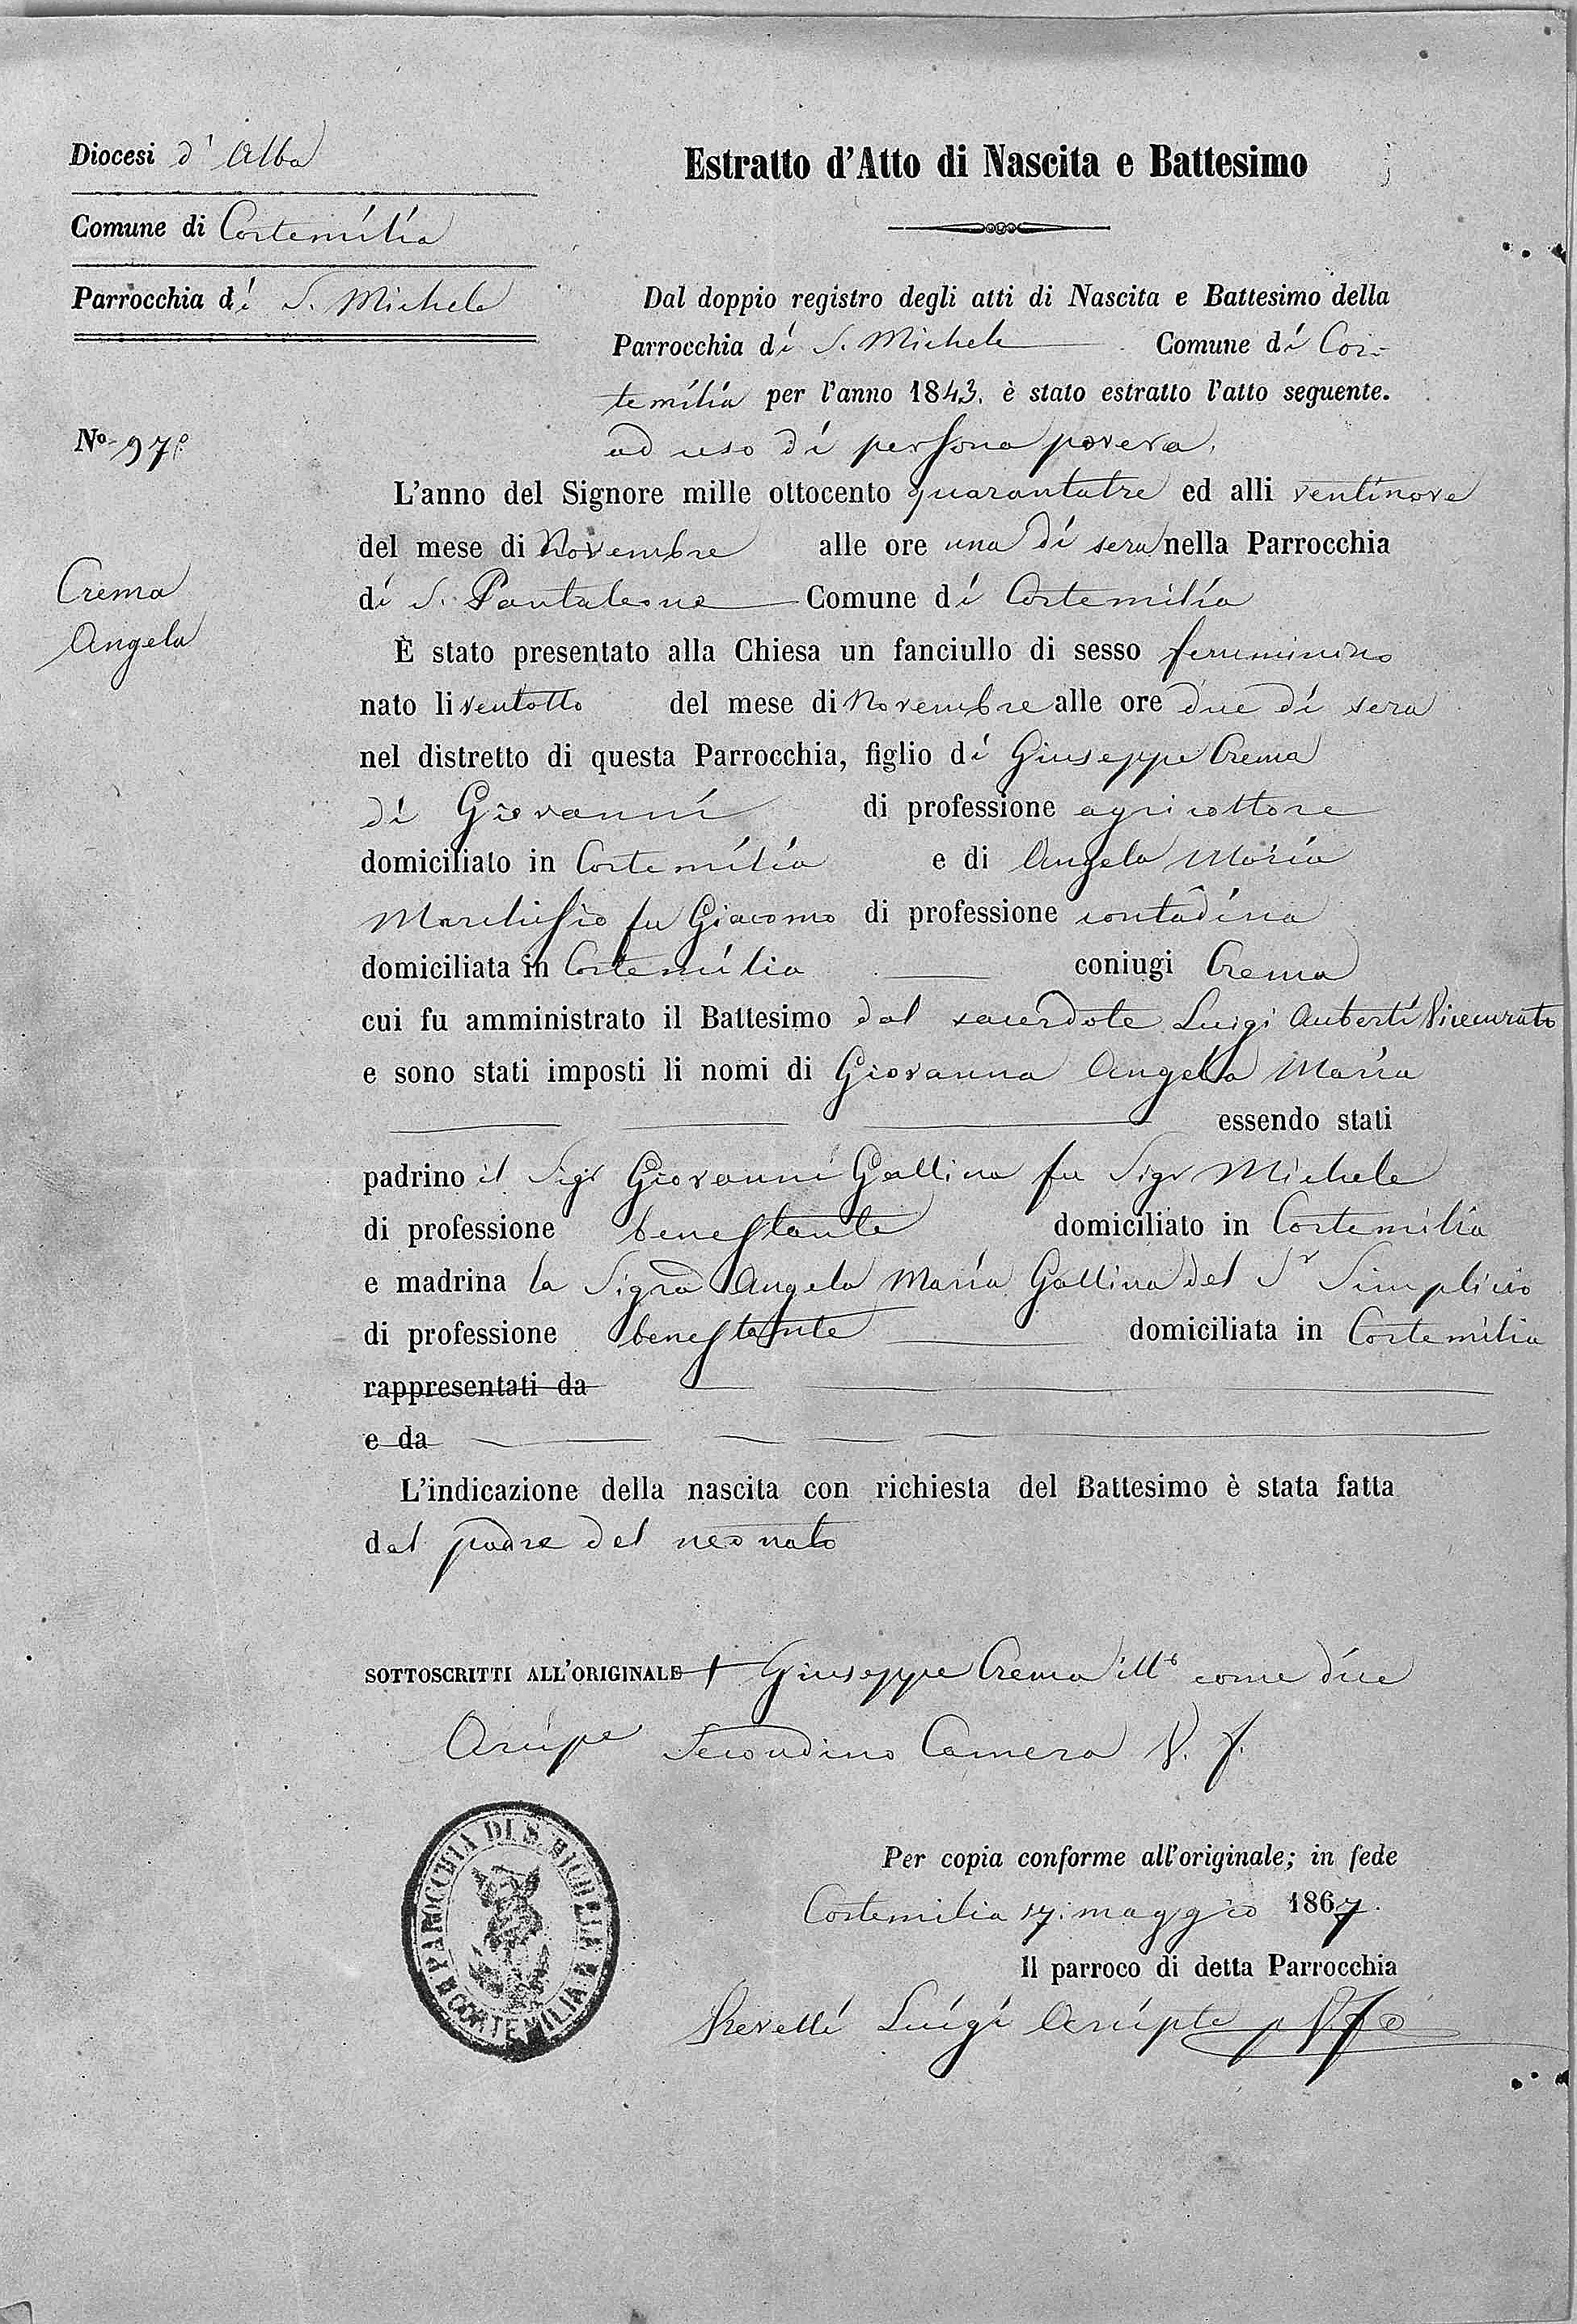 Diocesi d' Alba
Comune di Cortemilia
Parrocchia di S. Michele
Estratto d'Atto di Nascita e Battesimo
Dal doppio registro degli atti di Nascita e Battesimo della
Parrocchia di S. Michele Comune di Cor-
temilia per l'anno 1843. è stato estratto l'atto seguente.
ad uso di persona povera.
Nº 97
Crema
Angela
L'anno del Signore mille ottocento quarantatre ed alli ventinove
del mese di Novembre alle ore una di sera nella Parrocchia
di S. Pantaleone Comune di Cortemilia
È stato presentato alla Chiesa un fanciullo di sesso femminino
nato li ventotto del mese di Novembre alle ore due di sera
nel distretto di questa Parrocchia, figlio di Giuseppe Crema
di Giovanni di professione agricoltore
domiciliato in Cortemilia e di Angela Maria
Marchisio fu Giacomo di professione contadina
domiciliata in Cortemilia coniugi Crema
cui fu amministrato il Battesimo dal sacerdote Luigi Auberti Vicecurato
e sono stati imposti li nomi di Giovanna Angela Maria
essendo stati
padrino il Sigr Giovanni Gallina fu Sigr Michele
di professione benestante domiciliato in Cortemilia
e madrina la Sigra Angela Maria Gallina del Sr Simplicio
di professione benestante domiciliata in Cortemilia
rappresentati da
e da
L'indicazione della nascita con richiesta del Battesimo è stata fatta
dal padre del neonato
SOTTOSCRITTI ALL'ORIGINALE + Giuseppe Crema come dice
Secondino Camera V. f.
PAROCCHIA DI S. MICHELE CORTEMILIA
Per copia conforme all'originale; in fede
Cortemilia 17. maggio 1867.
Il parroco di detta Parrocchia
Luigi